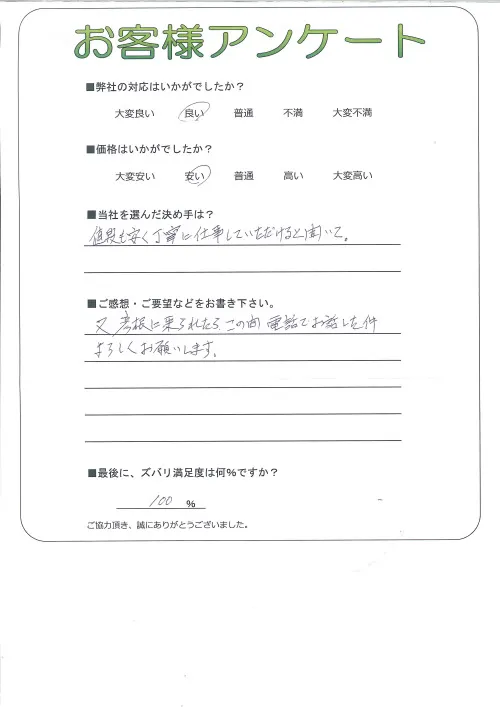 お客様アンケート
■弊社の対応はいかがでしたか?
大変良い 良い 普通 不満 大変不満
■価格はいかがでしたか?
大変安い 安い 普通 高い 大変高い
■当社を選んだ決め手は?
値段も安く丁寧に仕事していただけると聞いて。
■ご感想・ご要望などをお書き下さい。
又 彦根に来られたら この間 電話でお話した件
よろしくお願いします。
■最後に、ズバリ満足度は何%ですか?
100 %
ご協力頂き、誠にありがとうございました。